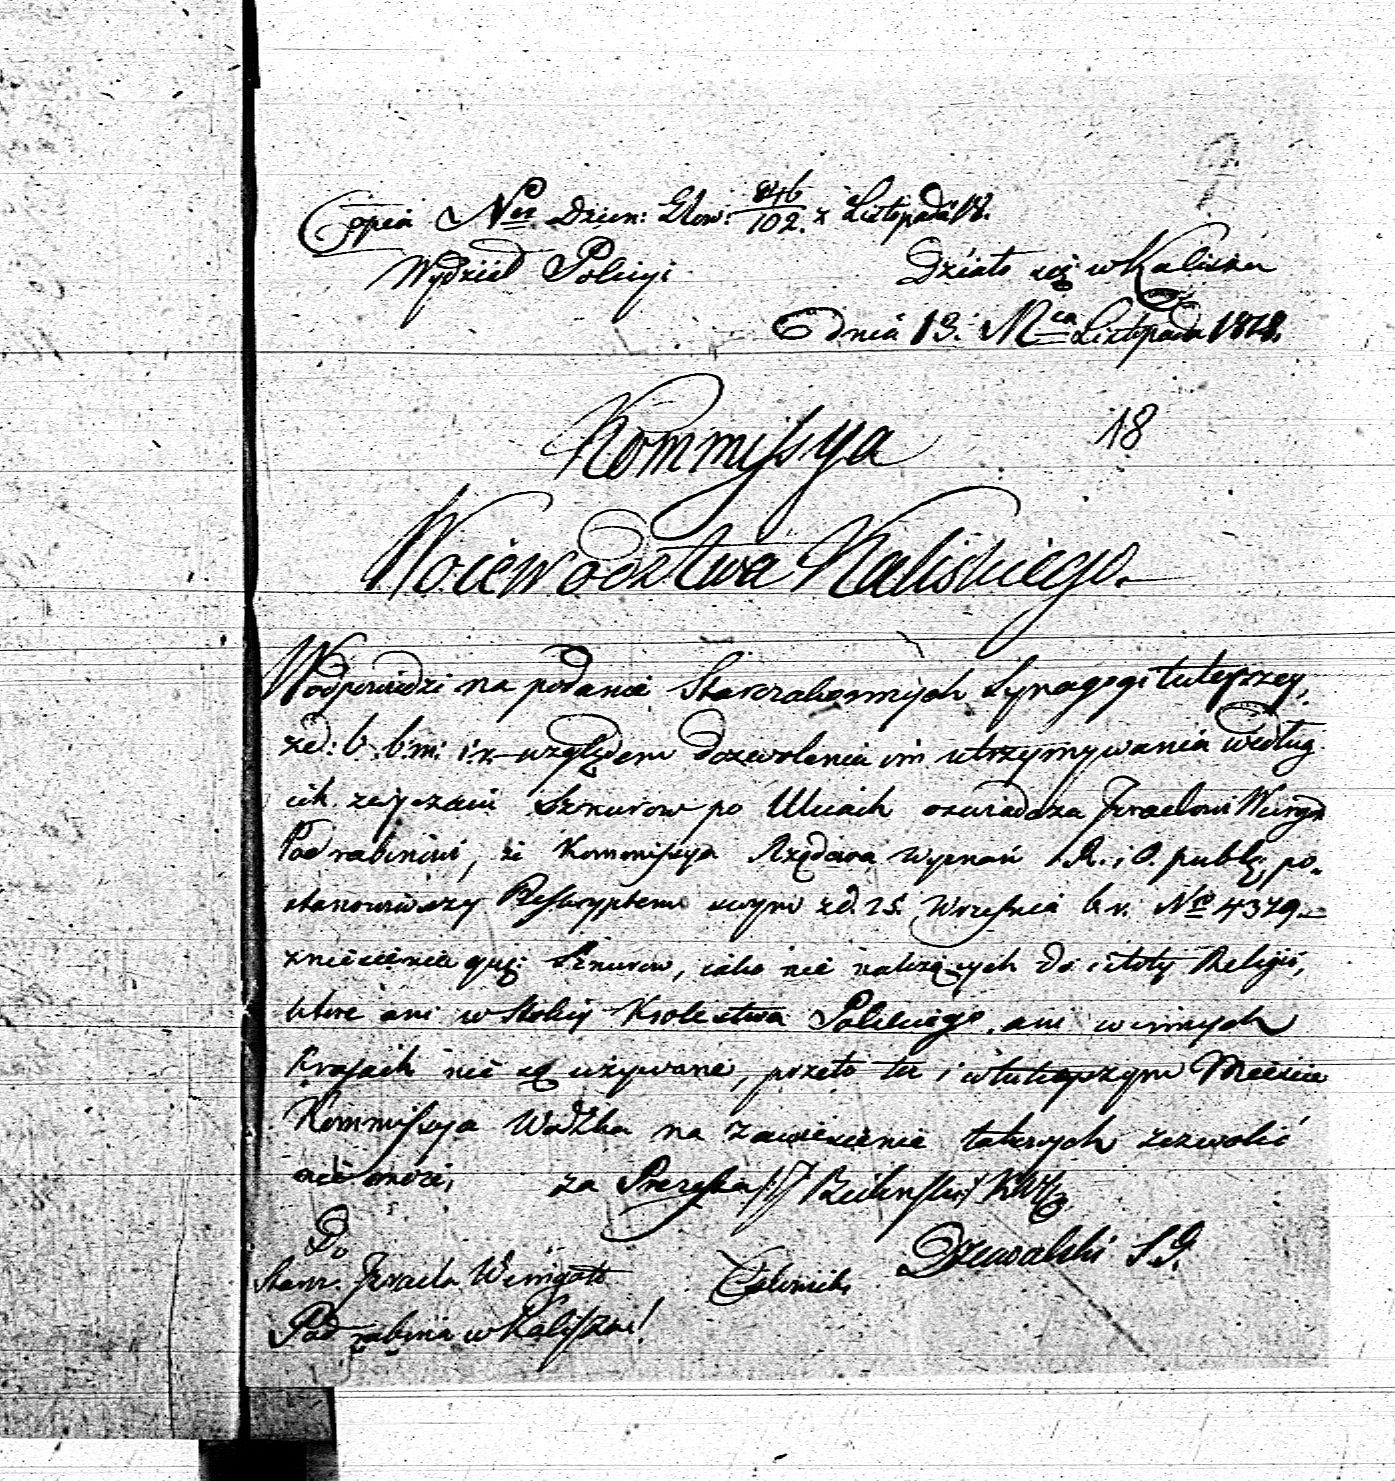 Copia Ner Dzien: Głow: 846/102. z Listopada 18.
Wydział Policyi
Działo się w Kaliszu
dnia 13. Mca Listopada 1818.
18
Kommissya
Woiewództwa Kaliskiego.
W odpowiedzi na podanie Starozakonnych Synagogi tuteyszey,
zed: b. b: m: i r. względem dozwolenia im utrzymywania według
ich zwyczaiu Sznurow po Ulicach oswiadcza Izraelowi
Pod rabinowi, że Kommissya Rządowa Wyznań R. i O. publ: po-
stanowiwszy Reskryptem swym zd. 25. Września b. r. Nro 4379
zniesienie Sznurow, iako nie należących do istoty Religii,
które ani w Stolicy Krolestwa Polskiego, ani w innych
Kraiach nie są używane, przeto tu i w tuteyszym Mieście
Kommissya Wdzka na zawieszenie takowych zezwolić
nie może,
za Prezesa
Do
Starz. Izraela Weingott
Pod rabina w Kaliszu!